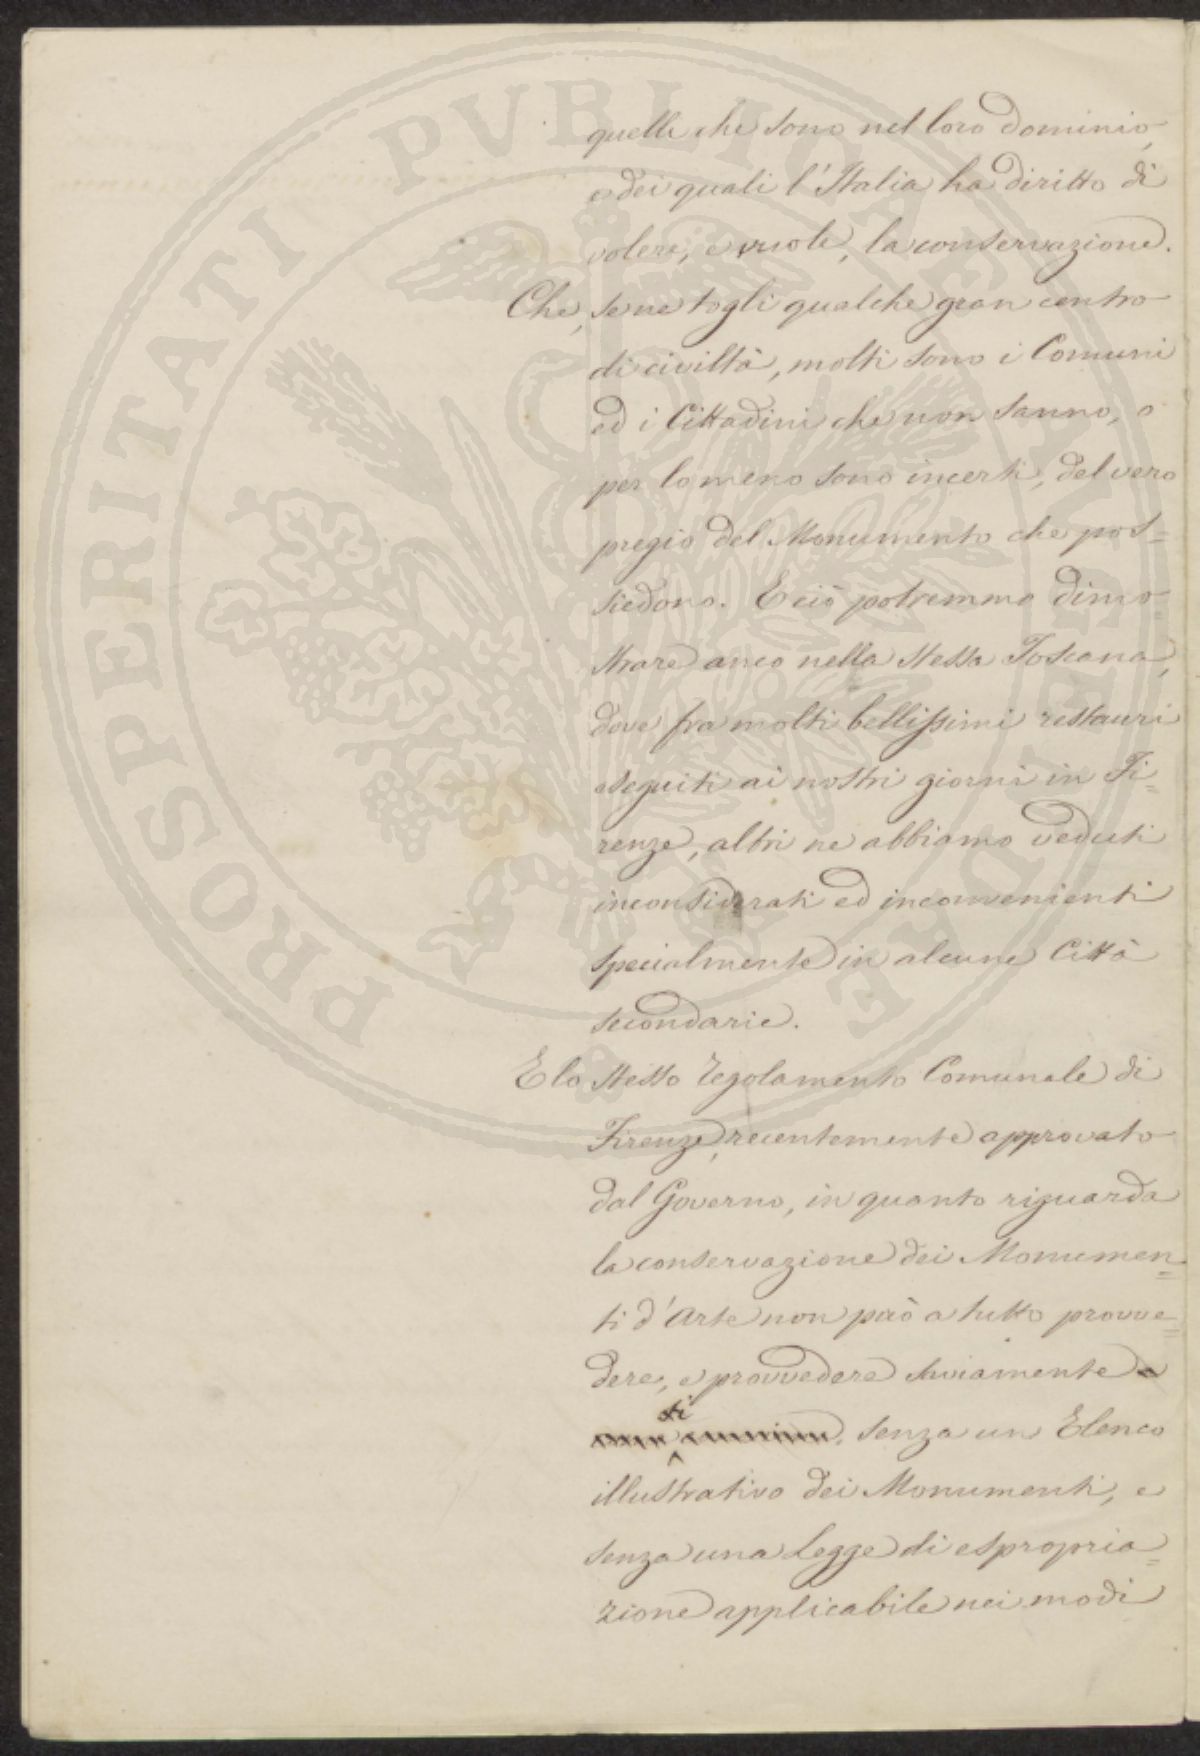 PROSPERITATI PVBLICAE AVGENDAE
quelli che sono nel loro dominio,
e dei quali l'Italia ha diritto di
volere, e vuole, la conservazione.
Che, se ne togli qualche gran centro
di civiltà, molti sono i Comuni
ed i Cittadini che non sanno, o
per lo meno sono incerti, del vero
pregio del Monumento che pos=
siedono. E ciò potremmo dimo=
strare anco nella stessa Toscana,
dove fra molti bellissimi restauri
eseguiti ai nostri giorni in Fi=
renze, altri ne abbiamo veduti
inconsiderati ed inconvenienti
specialmente in alcune Città
secondarie.
E lo stesso regolamento Comunale di
Firenze, recentemente approvato
dal Governo, in quanto riguarda
la conservazione dei Monumen=
ti d'Arte non può a tutto provve=
dere, e provvedere saviamente
senza un Elenco
illustrativo dei Monumenti, e
senza una Legge di espropria=
zione applicabile nei modi